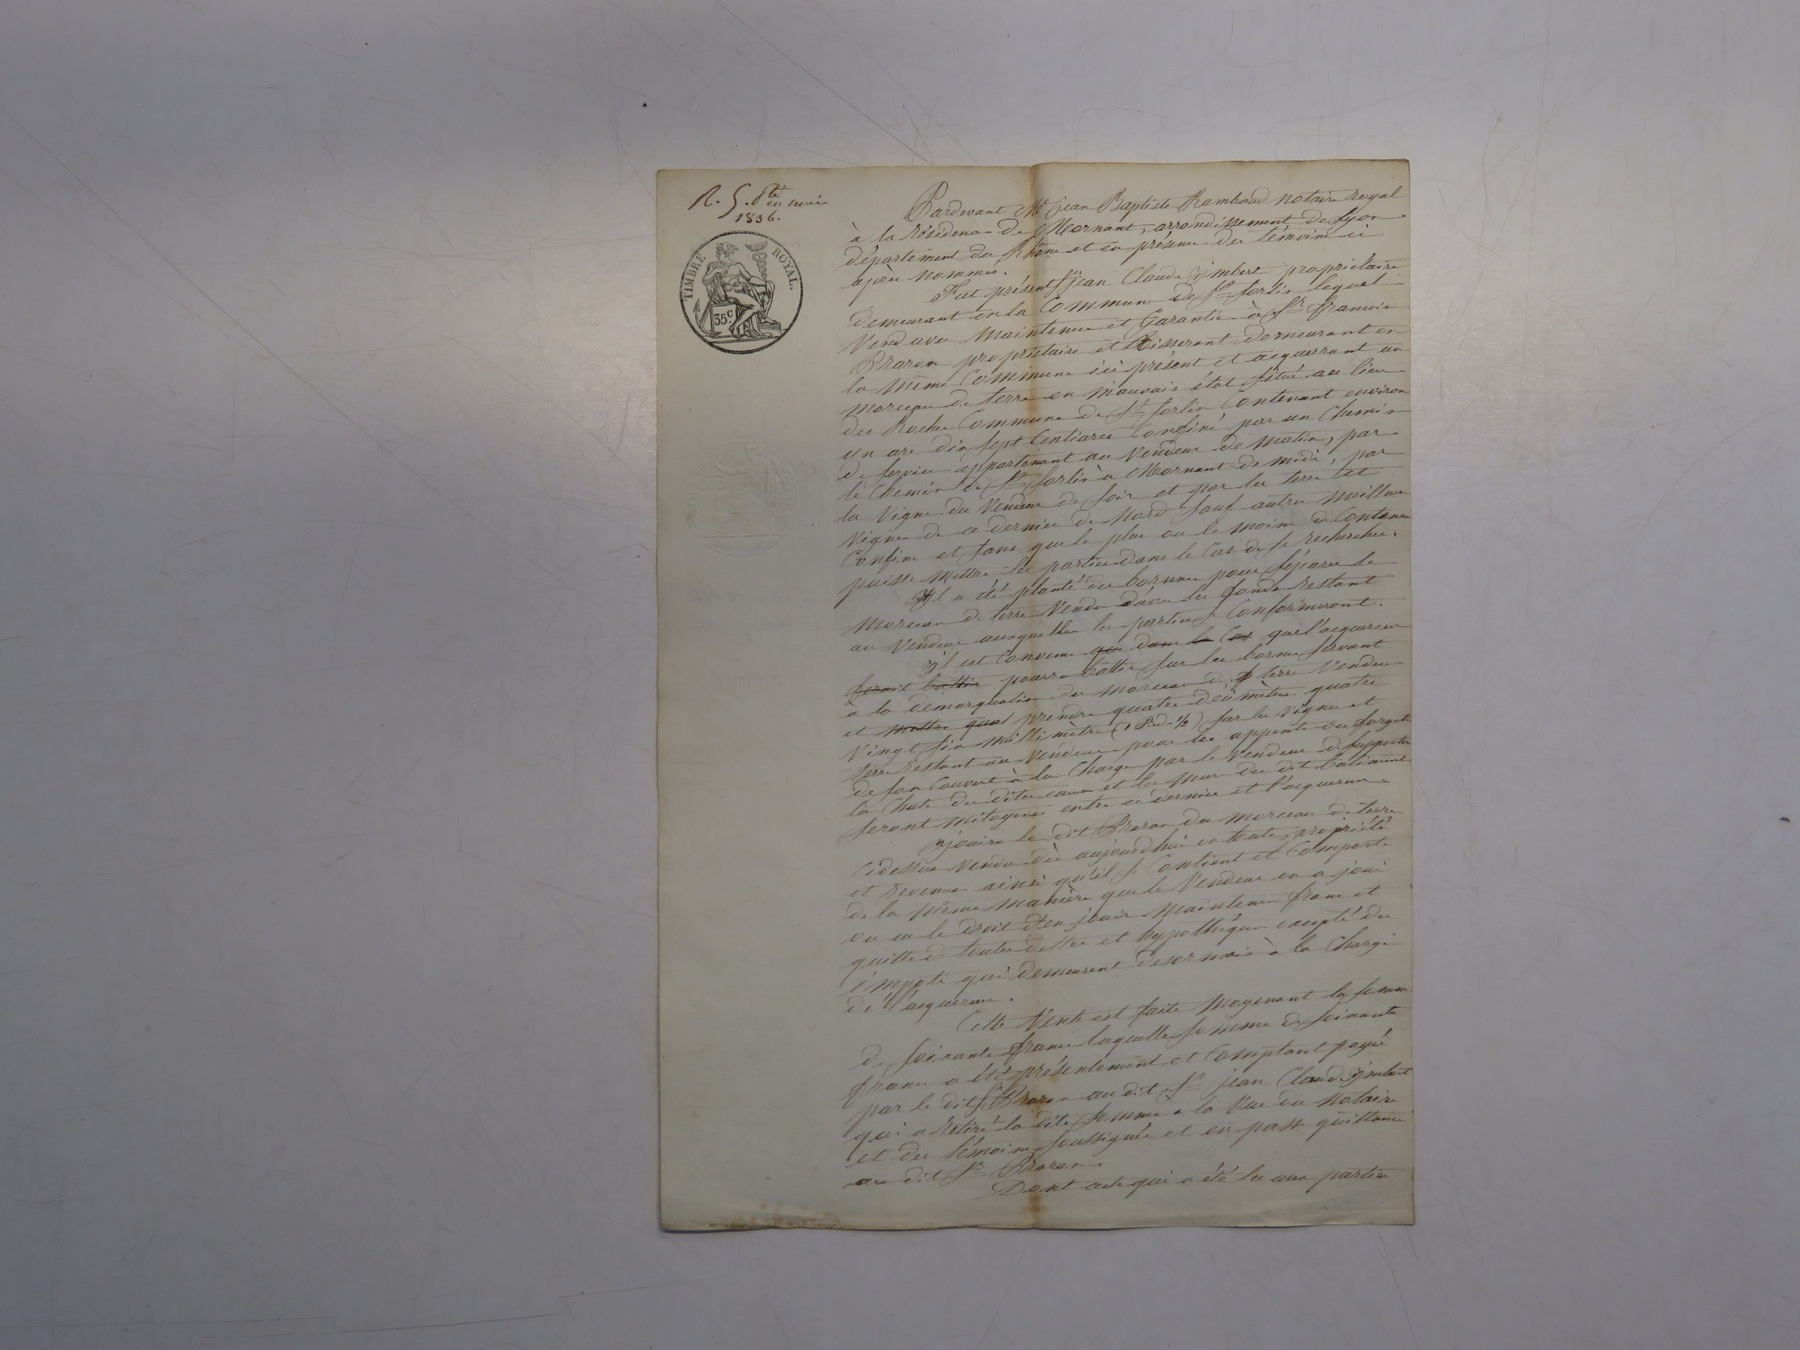 R. G. pte
en mai
1836.
TIMBRE ROYAL.
35c
Pardevant Me Jean Baptiste Rambaud notaire royal
à la résidence de Mornant, arrondissement de Lyon
département du Rhône et en présence des témoins ci
après nommés.
Fut présent Sr jean Claude Imbert propriétaire
demeurant en la Commune de St Sorlin lequel
Vend avec Maintenue et Garantie à Sr françois
propriétaire et tisserant demeurant en
la même Commune ici présent et acquerrant un
morceau de terre en mauvais état situé au lieu
des Roches Commune de St Sorlin Contenant environ
un are dix sept Centiares Confiné par un Chemin
de service appartenant au Vendeur de matin, par
le Chemin de St Sorlin à Mornant de midi, par
la Vigne du Vendeur de soir et par les terre et
Vignes de ce dernier de Nord sauf autres meilleurs
Confins et sans que le plus ou le moins de Contenue
puisse Mettre les parties dans le Cas de se rechercher.
Il a été planté des bornes pour séparer le
Morceau de terre Vendu d'avec les fonds restant
au Vendeur auxquelles les parties se Conformeront.
il est Convenu que dans le Cas que l'acquereur
feroit battir pourra bâtir sur les bornes servant
à la demarquation du morceau de terre Vendu
et Mettre quoi prendre quatre décimètres quatre
Vingt six Millimètres (1 Pied ½) sur les Vignes et
terre restant au Vendeur pour les appents ou forgets
de son Couvert à la Charge par le Vendeur de supporter
la Chute des dites eaux et les murs du dit batiment
seront Mitoyens entre ce dernier et l'acquereur
njouira le dit du morceau de terre
Cidessus Vendu dès aujourd'hui en toute propriété
et Revenus ainsi qu'il se Contient et Comporte
de la même manière que le Vendeur en a joui
ou eu le droit d'en jouir Maintenu franc et
quitte de toutes dettes et hypothèques excepté des
impots qui demeurent desormais à la Charge
de l'acquereur.
Cette Vente est faite Moyenant la somme
de soixante francs laquelle somme de soixante
francs a été présentement et Comptant payé
par le dit Sr au dit Sr jean Claude Imbert
qui a retiré la dite somme à la Vue du Notaire
et des témoins soussignés et en passe quittance
au dit Sr
Dont acte qui a été lu aux parties